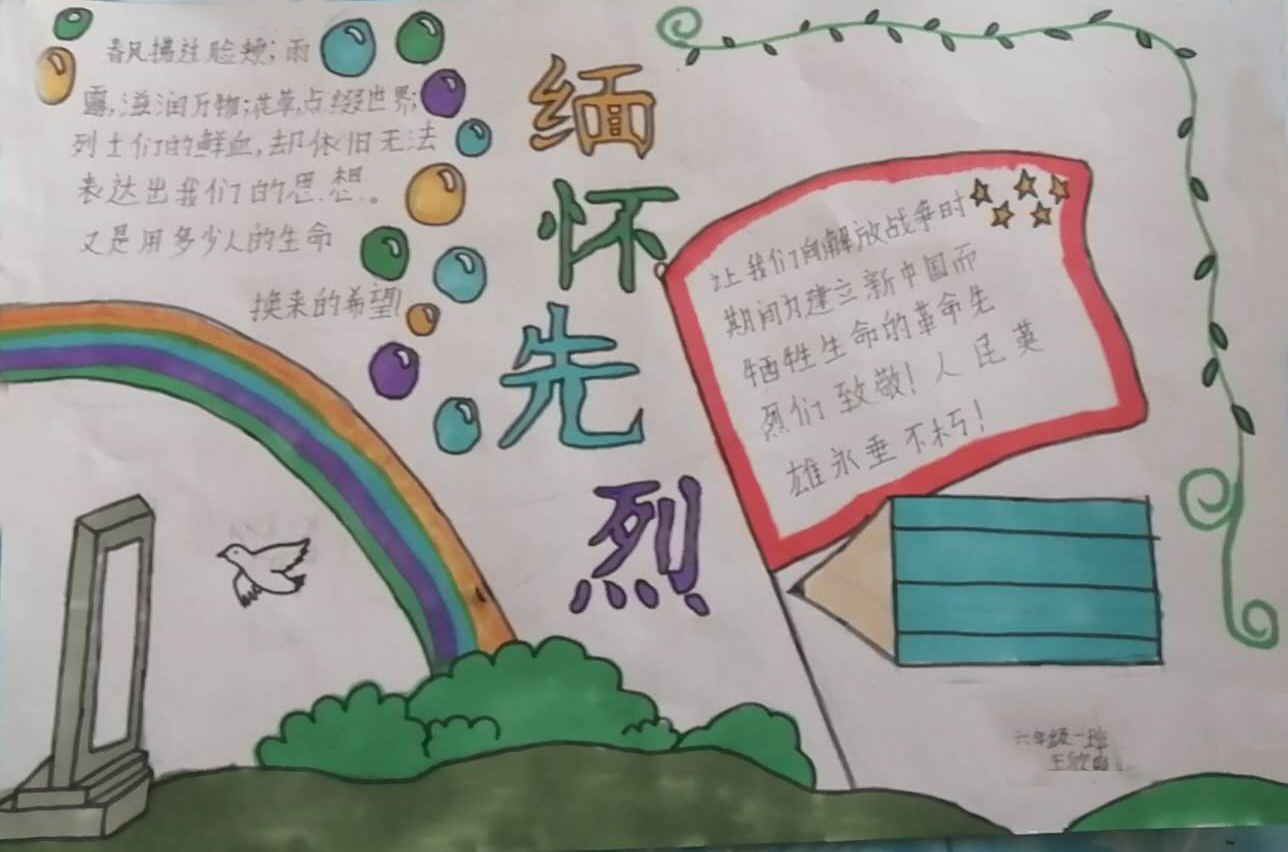 春风拂过脸颊；雨
露，滋润万物；花草，点缀世界；
烈士们的鲜血，却依旧无法
表达出我们的思想。
又是用多少人的生命
换来的希望！
缅
怀
先
烈
让我们向解放战争时
期间为建立新中国而
牺牲生命的革命先
烈们致敬！人民英
雄永垂不朽！
六年级一班
王欣